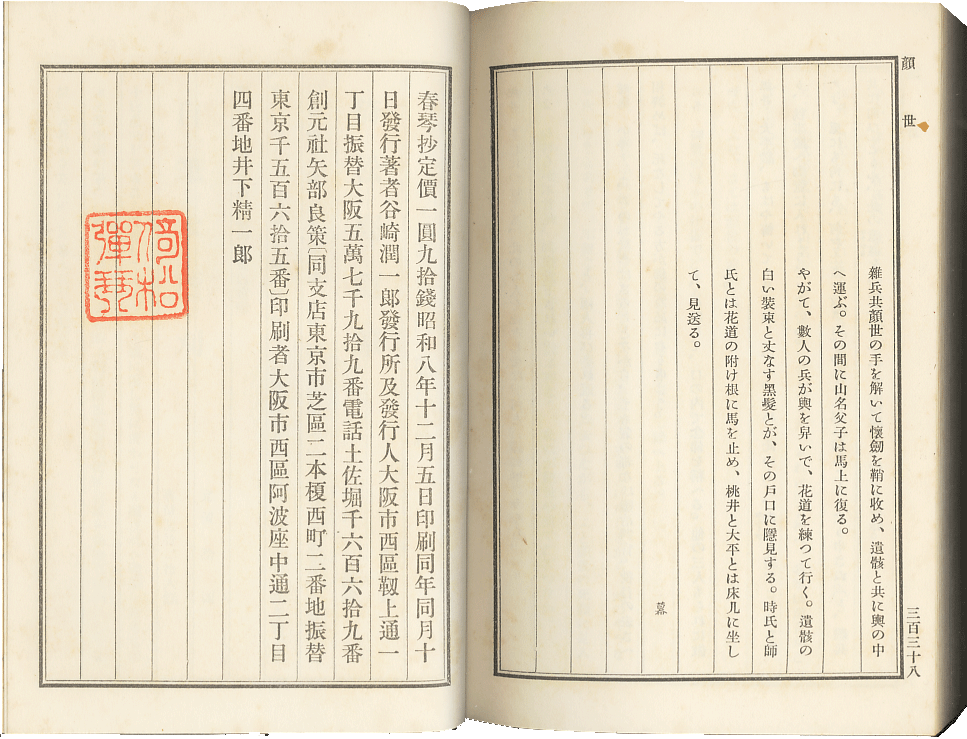 顏世
雜兵共顏世の手を解いて懷劍を鞘に收め、遺骸と共に輿の中
へ運ぶ。その間に山名父子は馬上に復る。
やがて、數人の兵が輿を舁いで、花道を練つて行く。遺骸の
白い裝束と丈なす黑髮とが、その戸口に隱見する。時氏と師
氏とは花道の附け根に馬を止め、桃井と大平とは床几に坐し
て、見送る。
幕
三百三十八
春琴抄定價一圓九拾錢昭和八年十二月五日印刷同年同月十
日發行著者谷崎潤一郎發行所及發行人大阪市西區靱上通一
丁目振替大阪五萬七千九拾九番電話土佐堀千六百六拾九番
創元社矢部良策〔同支店東京市芝區二本榎西町二番地振替
東京千五百六拾五番〕印刷者大阪市西區阿波座中通二丁目
四番地井下精一郎
倚松
彈琴